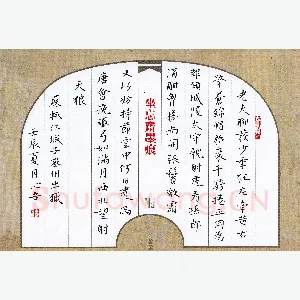 老夫聊發少年狂左牽黃右
擎蒼錦帽貂裘千騎卷平岡為
報傾城隨太守親射虎看孫郎
酒酣胸膽尚開張鬢微霜
坐忘齋墨痕
又何妨持節雲中何日遣馮
唐會挽雕弓如滿月西北望射
天狼
蘇軾江城子密州出獵
壬辰夏月
Shufawang.CN